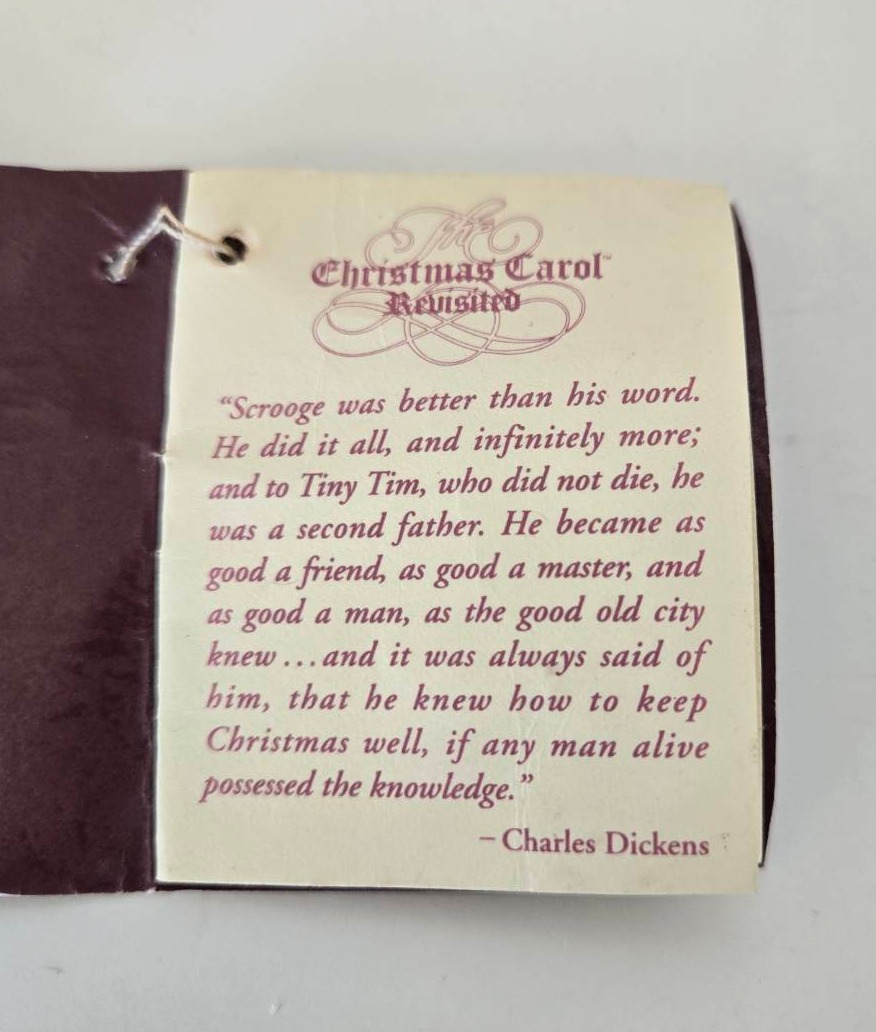 The
Christmas Carol™
Revisited
“Scrooge was better than his word.
He did it all, and infinitely more;
and to Tiny Tim, who did not die, he
was a second father. He became as
good a friend, as good a master, and
as good a man, as the good old city
knew...and it was always said of
him, that he knew how to keep
Christmas well, if any man alive
possessed the knowledge.”
– Charles Dickens